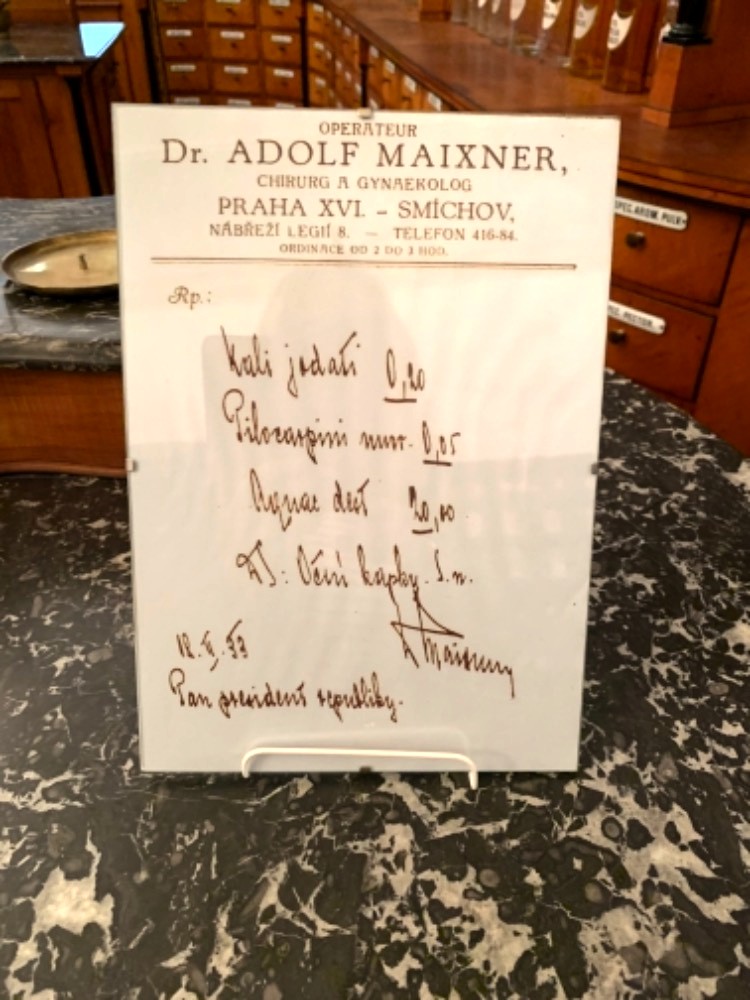 OPERATEUR
Dr. ADOLF MAIXNER,
CHIRURG A GYNAEKOLOG
PRAHA XVI. – SMÍCHOV,
NÁBŘEŽÍ LEGIÍ 8. — TELEFON 416-84.
ORDINACE OD 2 DO 3 HOD.
Rp.:
Kali jodati 0,20
Pilocarpini mur. 0,05
Aquae dest 20,00
DS: Oční kapky. S.n.
Maixner
18. V. 33
Pan president republiky.
SPEC. AROM. PULV.